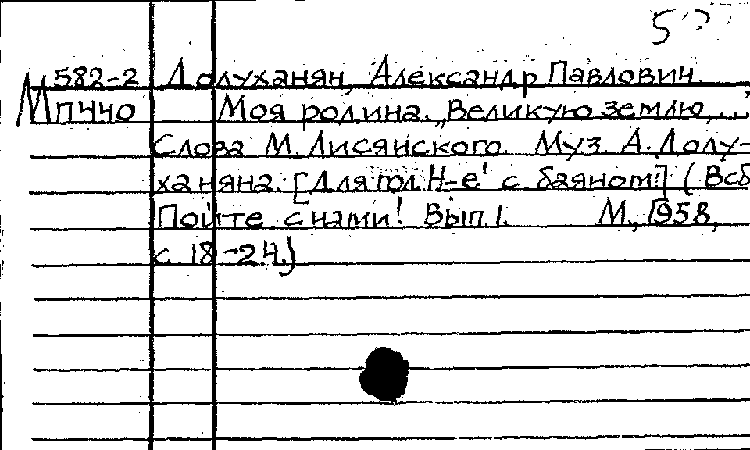 582-2 Долуханян, Александр Павлович.
МПЧЧО Моя родина. „Великую землю..."
Слова М. Лисянского. Муз. А. Долу-
ханяна. [Для гол. Н-е' с баяном] (Всб
Пойте с нами! Вып. 1. М., 1958,
с. 18-24.)